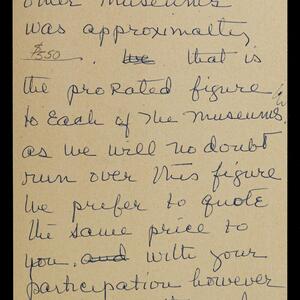 other Museums
was approximately
$550. that is
the proRated figure
to Each of the Museums.
as we will no doubt
run over this figure
we prefer to quote
the same price to
you. and with your
participation however